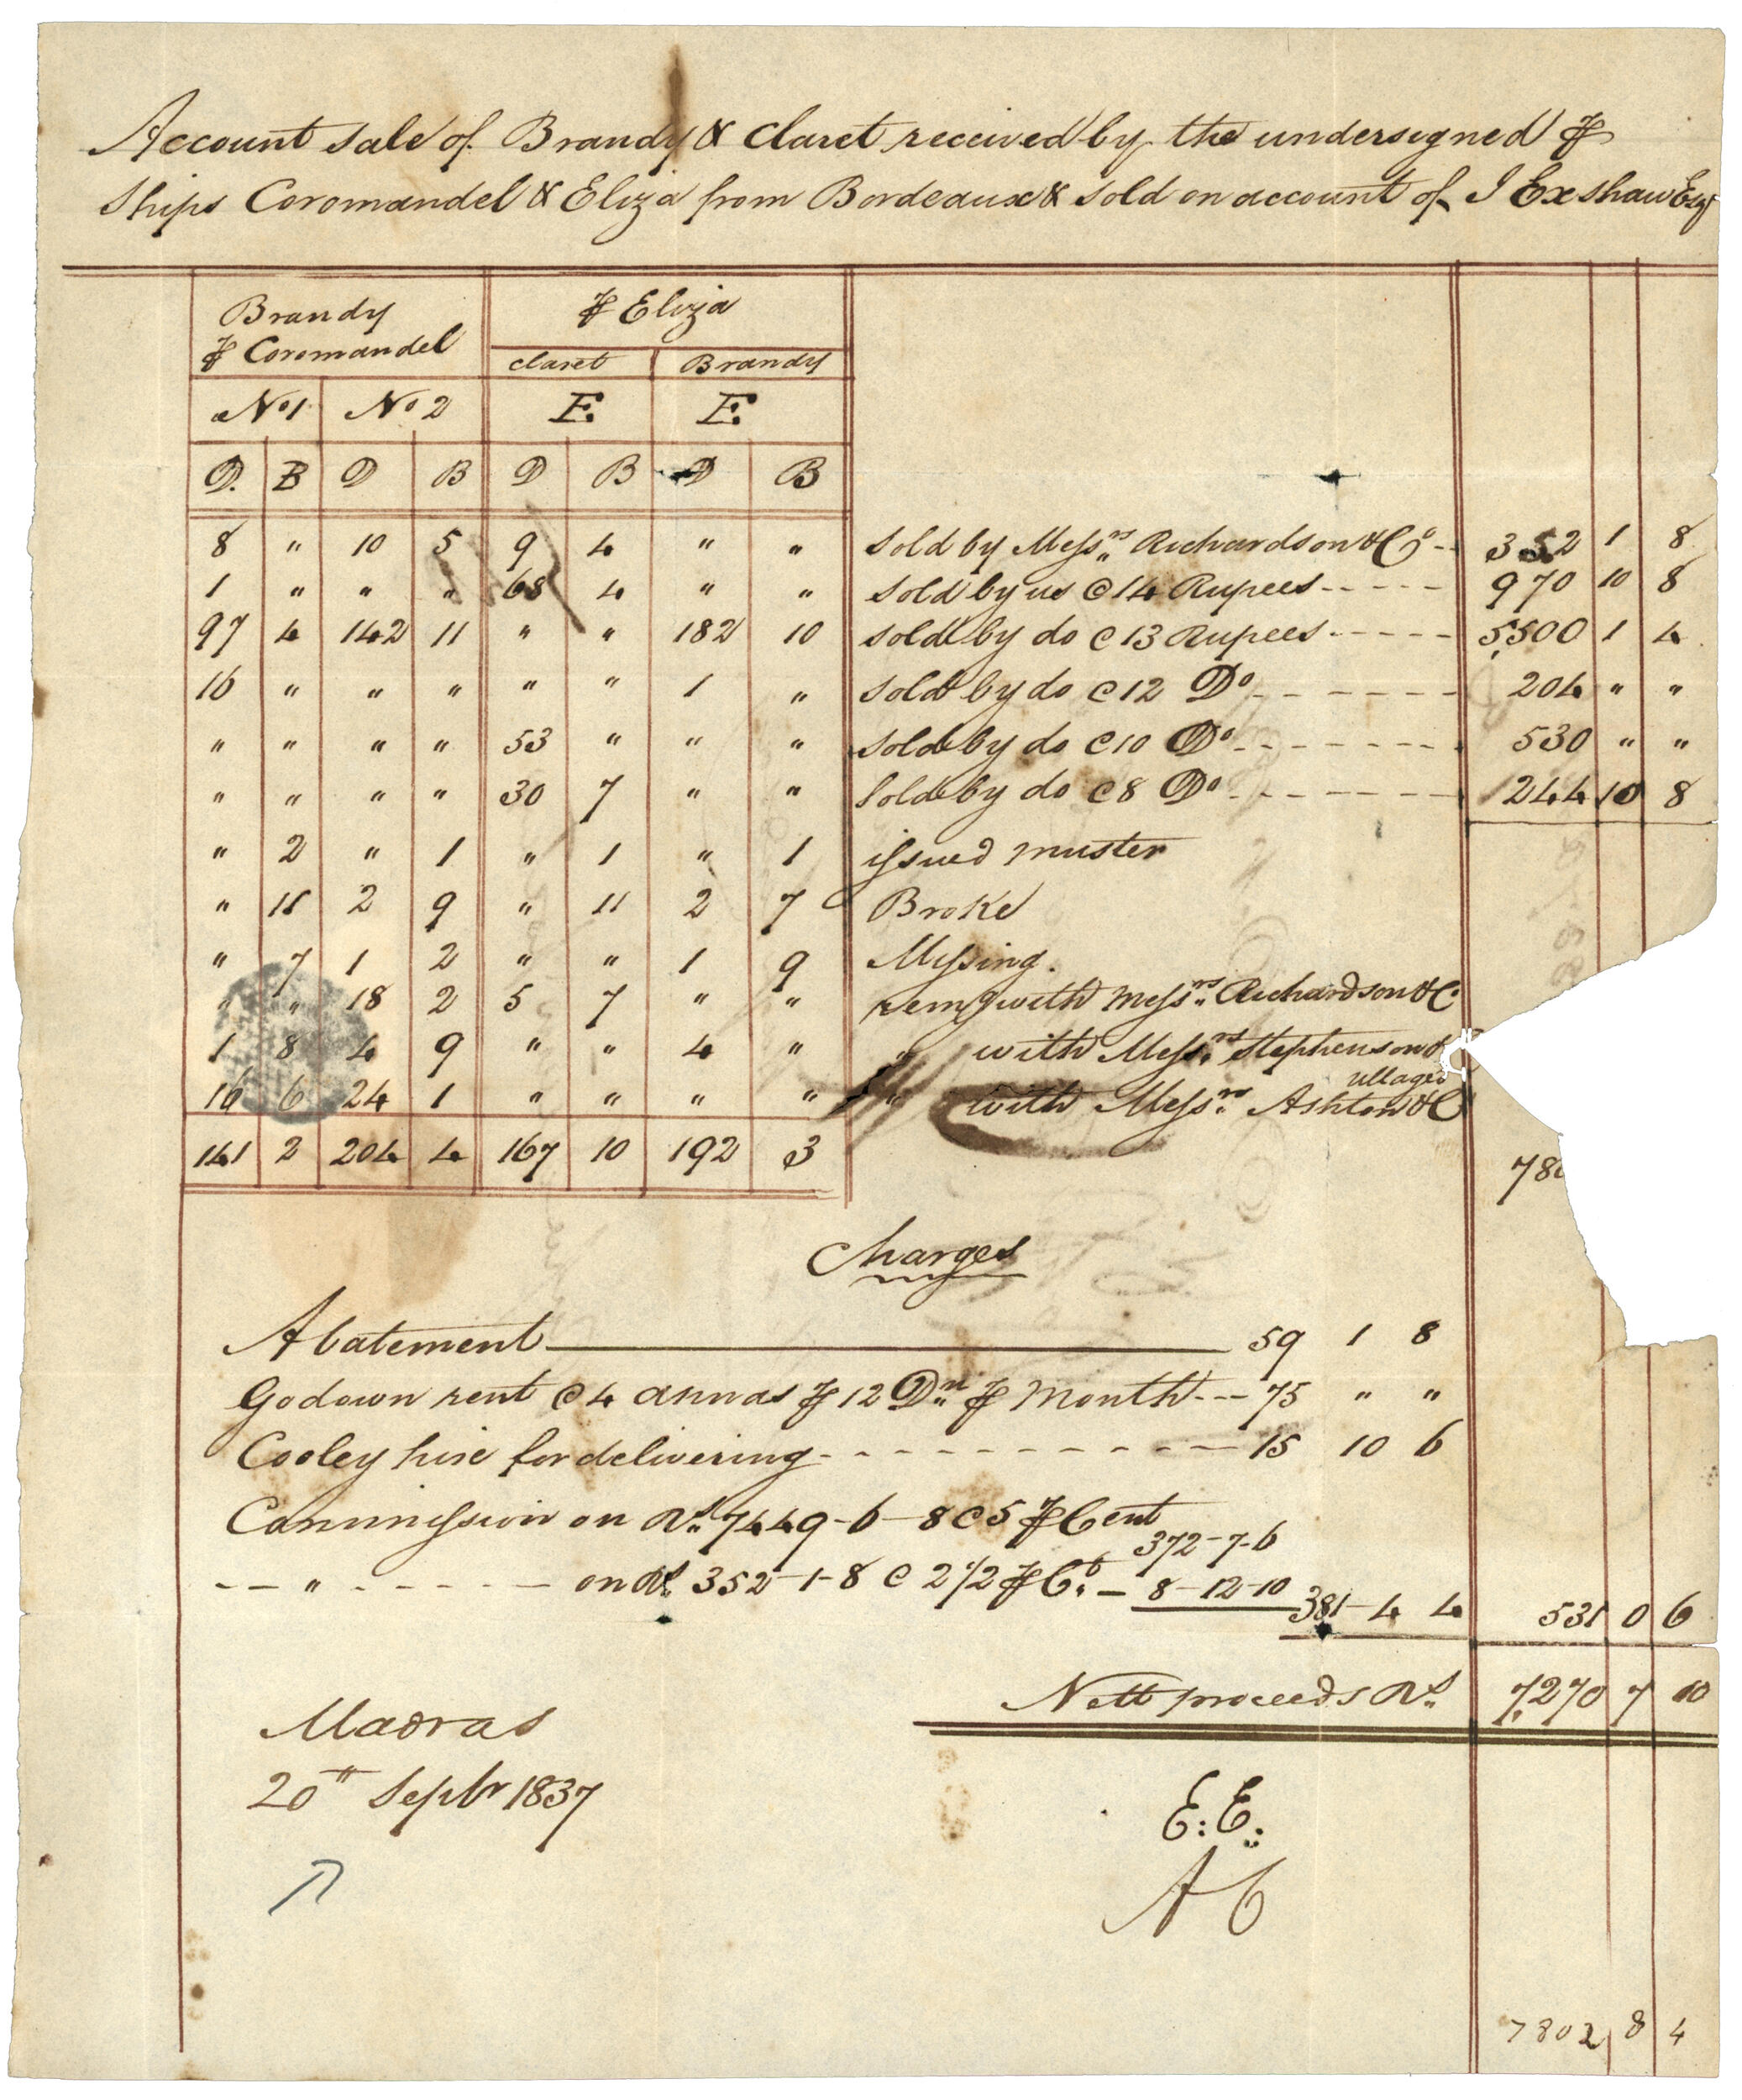 Account Sale of Brandy & Claret received by the undersigned ⅌
Ships Coromandel & Eliza from Bordeaux & Sold on account of J Exshaw Esqr
Brandy
⅌ Coromandel
⅌ Eliza
Claret Brandy
No 1 No 2 E. E.
D. B D B D B D B
8 " 10 5 9 4 " " Sold by Messrs Richardson & Co 352 1 8
1 " " " 68 4 " " Sold by us @ 14 Rupees 970 10 8
97 4 142 11 " " 182 10 Sold by do @ 13 Rupees 5,500 1 4
16 " " " " " 1 " Sold by do @ 12 Do 204 " "
" " " " 53 " " " Sold by do @ 10 Do 530 " "
" " " " 30 7 " " Sold by do @ 8 Do 244 10 8
" 2 " 1 " 1 " 1 issued muster
" 11 2 9 " 11 2 7 Broke
" 7 1 2 " " 1 9 Missing.
" " 18 2 5 7 " " remg with Messrs Richardson & C
1 8 4 9 " " 4 " " with Messrs Stephenson &
ullaged
16 6 24 1 " " " " " with Messrs Ashton & C
141 2 204 4 167 10 192 3
78
Charges
Abatement 59 1 8
Godown rent @ 4 annas ⅌ 12 Dn ⅌ Month 75 " "
Cooley hire for delivering 15 10 6
Commission on Rs 7449-6-8 @ 5 ⅌ Cent
372-7-6
" on Rs 352-1-8 @ 2 1/2 ⅌ Ct. 8-12-10 381-4 4 531 0 6
Nett proceeds Rs 7,270 7 10
Madras
20th Septr 1837
E: E:
A C
7802 8 4